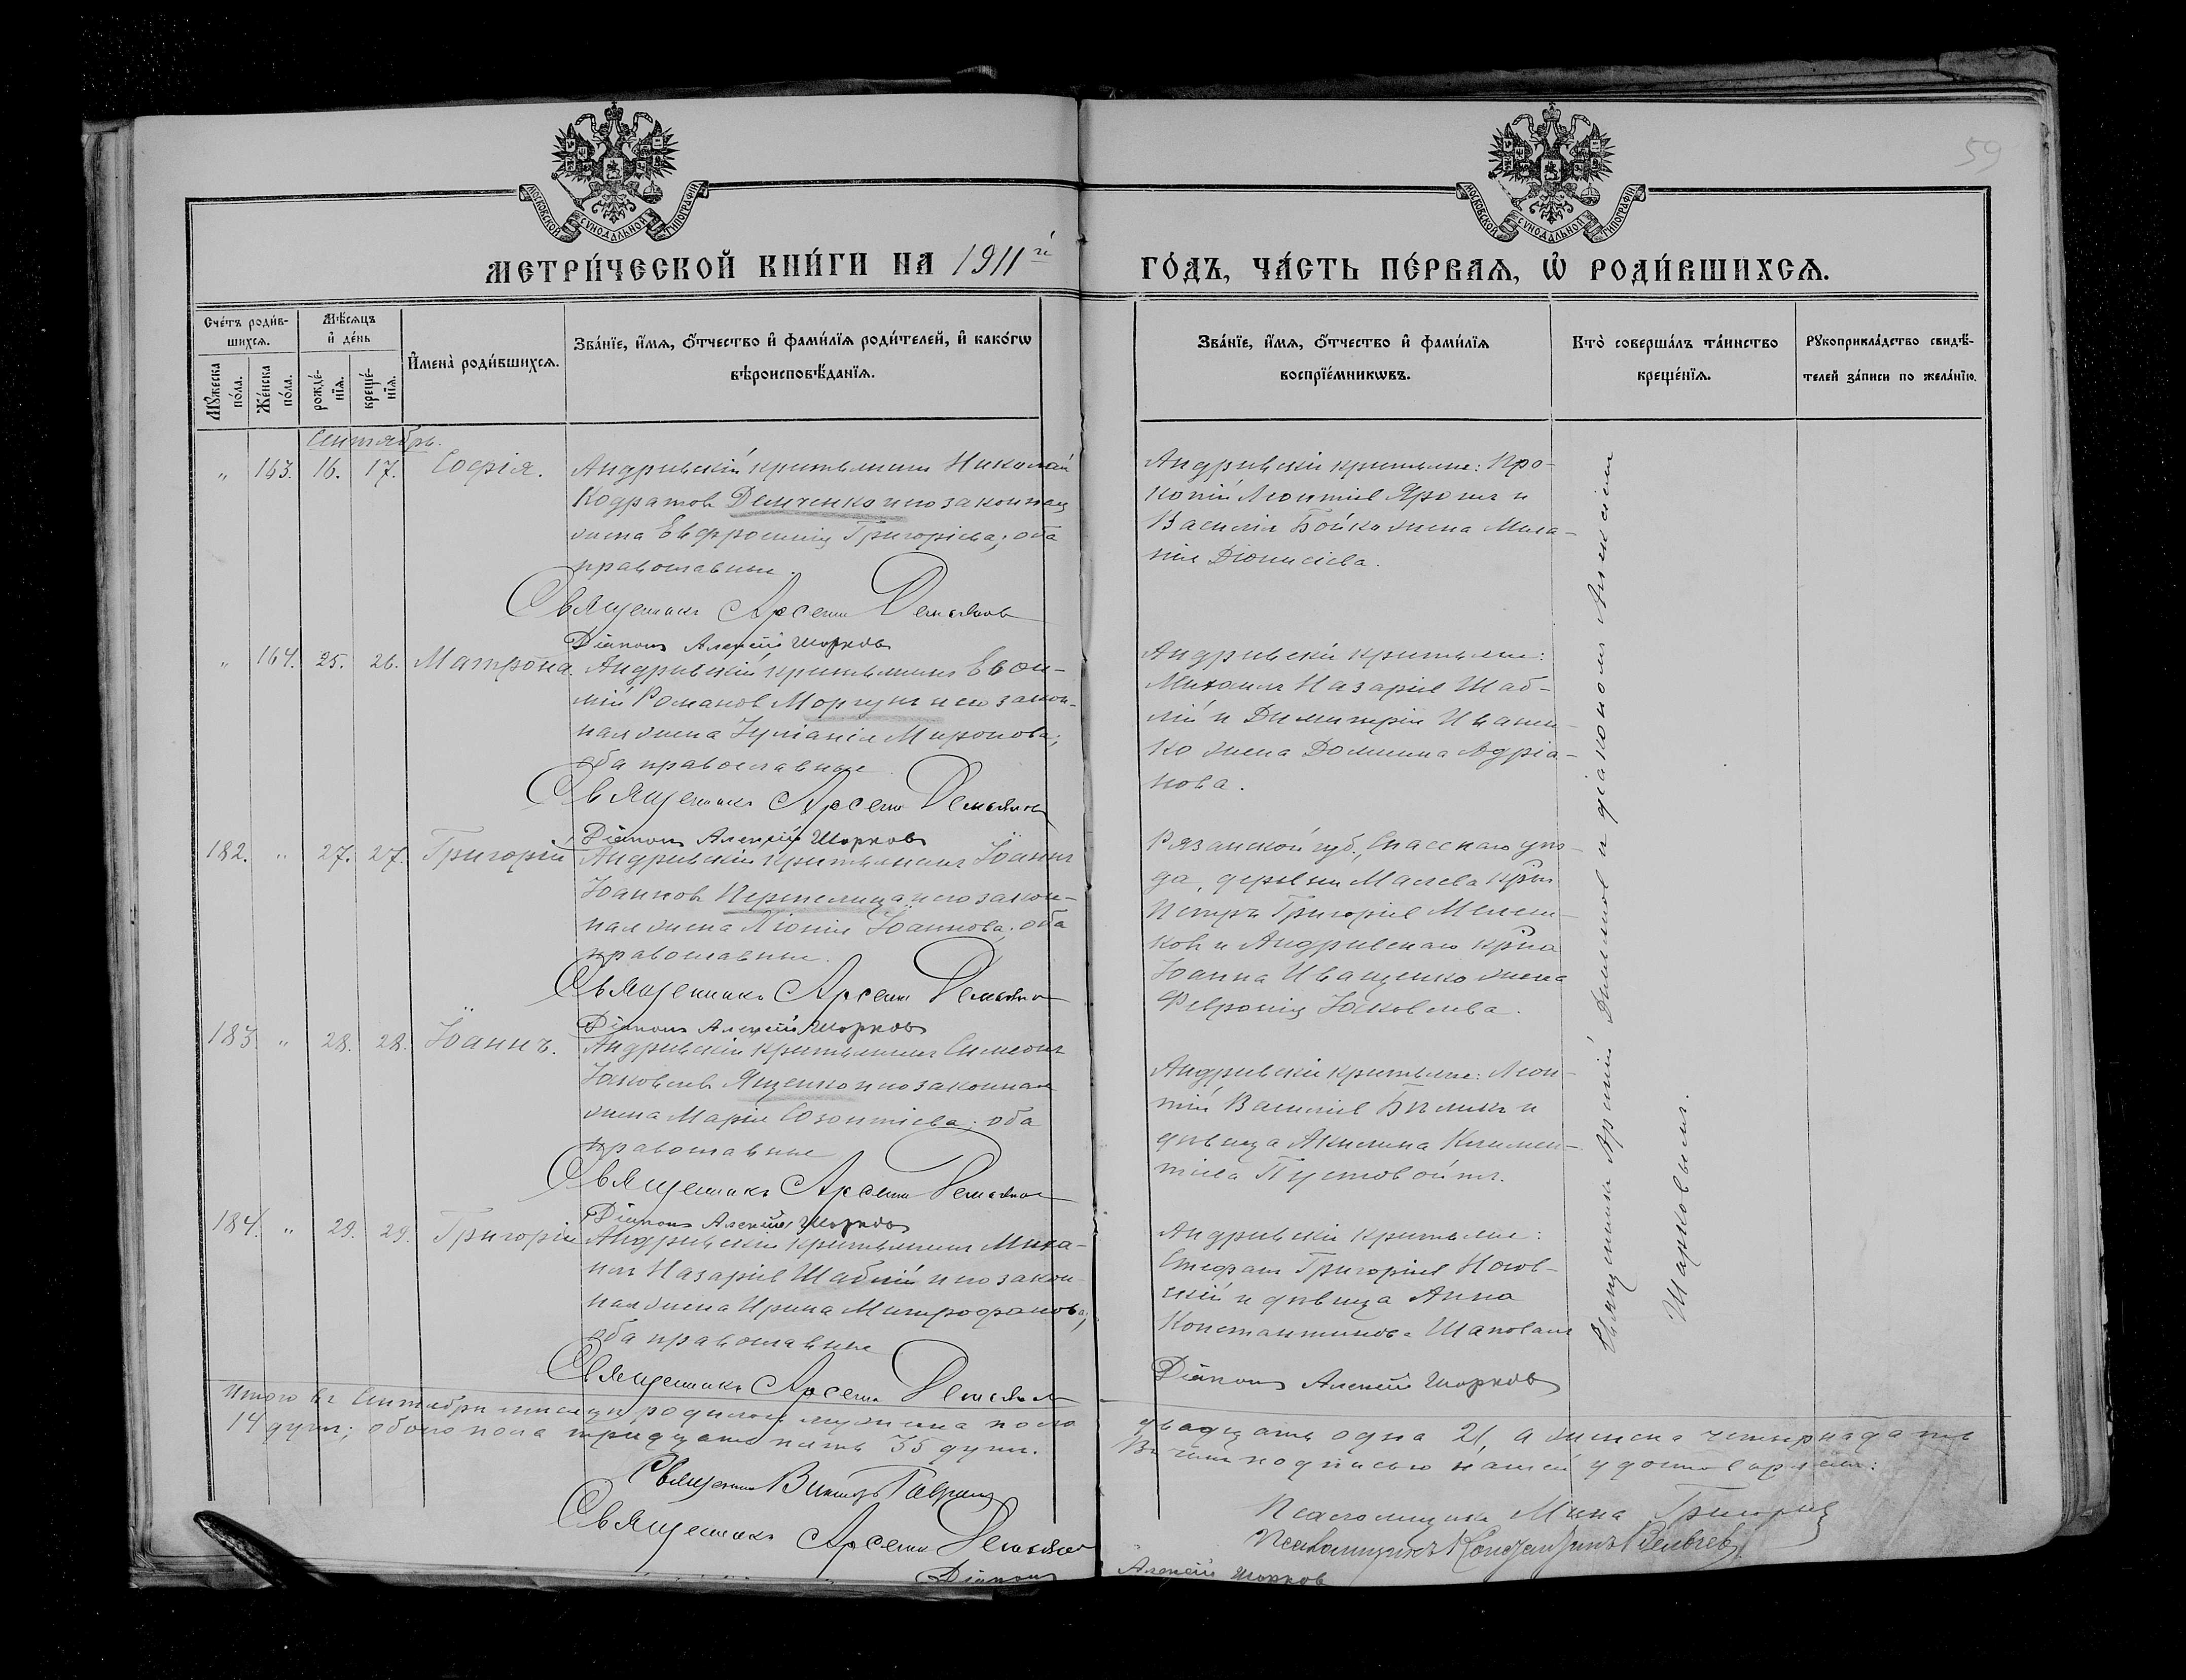 59
МОСКОВСКОЙ СѴНОДАЛЬНОЙ ТИПОГРАФІИ
МОСКОВСКОЙ СѴНОДАЛЬНОЙ ТИПОГРАФІИ
МЕТРИ́ЧЕСКОЙ КНИ́ГИ НА 1911й
ГО́ДЪ, ЧА́СТЬ ПЕ́РВАѦ, Ѡ҆ РОДИ́ВШИХСѦ.
Сче́тъ роди́в-
шихсѧ.
Мꙋ́жеска по́ла.
Же́нска по́ла.
Мѣ́сѧцъ
и҆ де́нь
рожде́-
нїѧ.
креще́-
нїѧ.
И҆мена̀ роди́вшихсѧ.
Зва́нїе, и҆́мѧ, ѻ҆́тчество и҆ фами́лїѧ роди́телей, и҆ како́гѡ
вѣроисповѣ́данїѧ.
Зва́нїе, и҆́мѧ, ѻ҆́тчество и҆ фами́лїѧ
воспрїе́мникѡвъ.
Кто̀ соверша́лъ та́инство
креще́нїѧ.
Рꙋкоприкла́дство свидѣ́-
телей за́писи по жела́нїю.
Сентябрь.
" 163. 16. 17. Софія.
Андреевскій крестьянинъ Николай
Кодратовъ Демченко и его законная
жена Евфросинія Григоріева; оба
православные.
Священникъ Арсеній
Діаконъ Алексій Шорковъ
Андреевскіе крестьяне: Про-
копій Леонтіевъ Ярошъ и
Василія Бойко жена Мела-
нія Діонисіева.
" 164. 25. 26. Матрона.
Андреевскій крестьянинъ Евѳи-
мій Романовъ Моргунъ и его закон-
ная жена Іуліанія Миронова;
оба православные
Священникъ Арсеній
Діаконъ Алексій Шорковъ
Андреевскіе крестьяне:
Михаилъ Назаріевъ Шаб-
лій и Димитрія Ивашен-
ко жена Домника Адріа-
нова.
182. " 27. 27. Григорій
Андреевскій крестьянинъ Іоаннъ
Іоанновъ Перепелица и его закон-
ная жена Іоаннова; оба
православные.
Священникъ Арсеній
Діаконъ Алексій Шорковъ
Рязанской губ., Спасскаго уѣз-
да, деревни кр-нъ
Петръ Григоріевъ
и Андреевскаго кр-на
Іоанна Иващенко жена
Февронія Іаковлева.
183. " 28. 28. Іоаннъ.
Андреевскій крестьянинъ Симеонъ
Іаковлевъ Яценко и его законная
жена Марія Созонтіева; оба
православные
Священникъ Арсеній
Діаконъ Алексій Шорковъ
Андреевскіе крестьяне: Леон-
тій Василіевъ Билыкъ и
дѣвица Акилина Климен-
тіева Пустовойтъ.
184. " 29. 29. Григорій
Андреевскій крестьянинъ Миха-
илъ Назаріевъ Шаблій и его закон-
ная жена Ирина Митрофанова;
оба православные
Священникъ Арсеній
Андреевскіе крестьяне:
Стефанъ Григоріевъ Носов-
скій и дѣвица Анна
Константинова Шаповалъ
Діаконъ Алексій Шорковъ
Священникъ Арсеній и діакономъ Алексіемъ
Шорковымъ.
Итого въ Сентябрѣ мѣсяцѣ родилось мужеска пола двадцать одна 21, а женска четырнадцать
14 душъ; обоего пола тридцать пять 35 душъ. Въ чемъ подписью нашей удостовѣряемъ:
Священникъ Викторъ
Священникъ Арсеній
Діаконъ Алексій Шорковъ
Псаломщикъ Мина Григорій
Псаломщикъ Константинъ